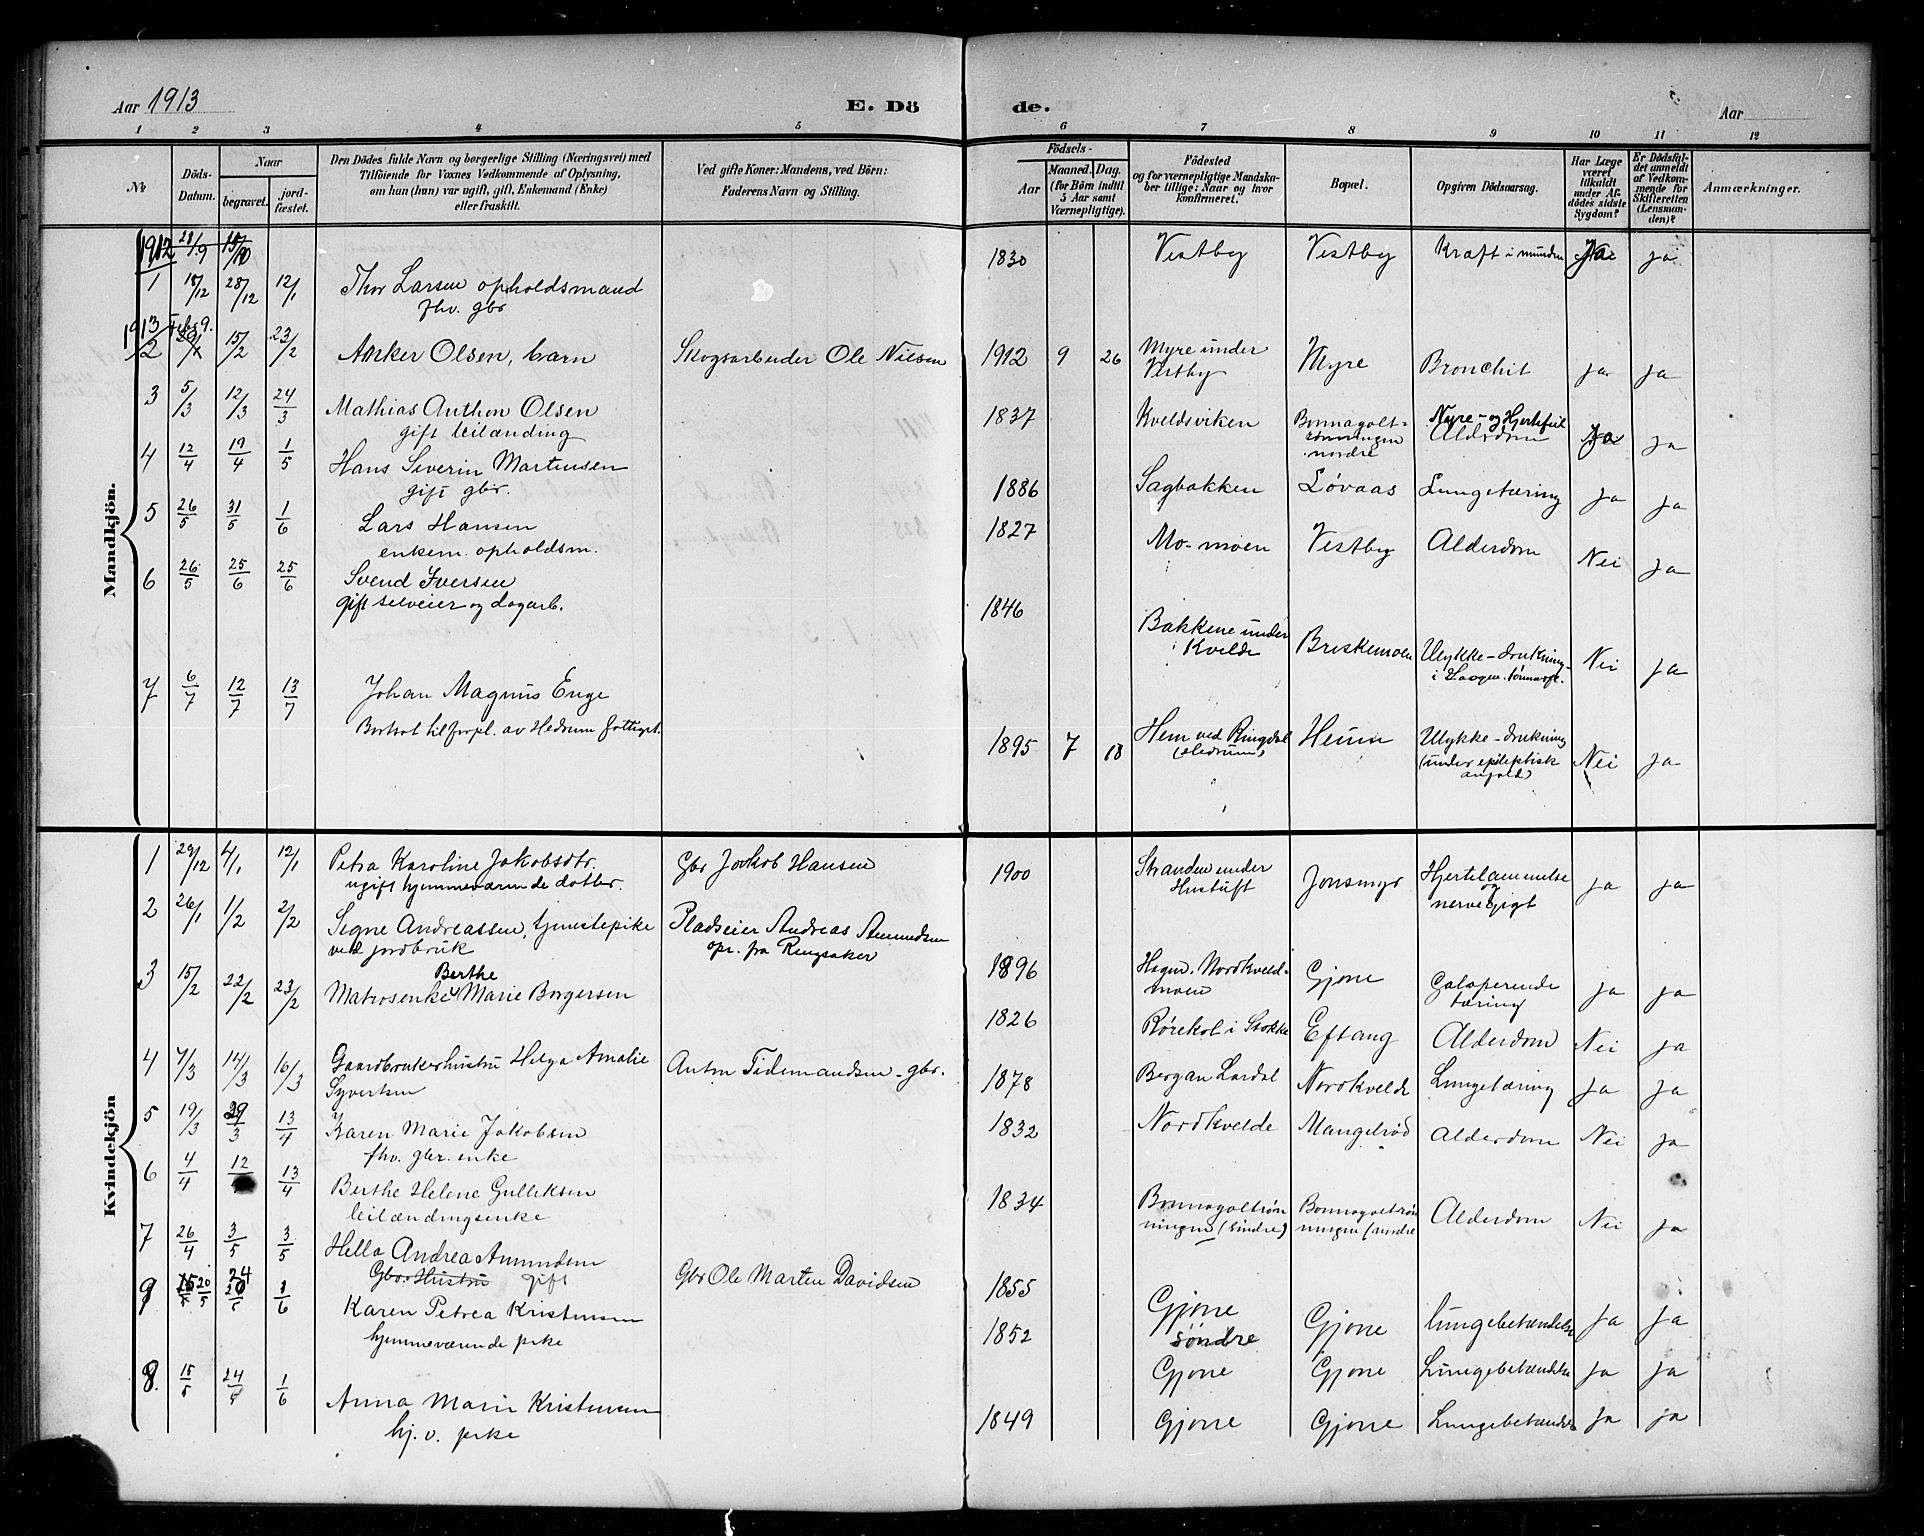 Aar 1913
E. Dö
de.
Aar
1 2 3 4 5 6 7 8 9 10 11 12
No
Döds-Datum.
Naar
begravet.
jord-fæstet.
Den Dödes fulde Navn og borgerlige Stilling (Næringsvei) med
Tilföiende for Voxnes Vedkommende af Oplysning,
om han (hun) var ugift, gift, Enkemand (Enke)
eller fraskilt.
Ved gifte Koner: Mandens, ved Börn:
Faderens Navn og Stilling.
Födsels-
Aar
Maaned. Dag.
(for Börn indtil
5 Aar samt
Værnepligtige).
Födested
og for værnepligtige Mandska-
ber tillige: Naar og hvor
konfirmeret.
Bopæl.
Opgiven Dödsaarsag.
Har Læge
været
tilkaldt
under Af-
dödes sidste
Sygdom?
Er Dödsfal-
det anmeldt
af Vedkom-
mende for
Skifteretten
(Lensman-
den)?
Anmærkninger.
Mandkjön.
1912 28/9 15/10
1 18/12 28/12 12/1 Thor Larsen opholdsmand 1830 Vestby Vestby Kræft i munden Ja ja
fhv. gbr
1913 Febr 9.
2 15/2 23/2 Anker Olsen, barn Skogsarbeider Ole Nilsen 1912 9 26 Myre under Vestby Myre Bronchit ja ja
3 5/3 12/3 24/3 Mathias Anthon Olsen 1837 Kveldsviken Bonnagolt-rønningen nordre Nyre- og Hjertefeil Alderdom Ja ja
gift leilænding
4 12/4 19/4 1/5 Hans Severin Martinsen 1886 Sagbakken Løvaas Lungetæring ja ja
gift gbr.
5 26/5 31/5 1/6 Lars Hansen 1827 Mo-moen Vestby Alderdom Nei ja
enkem. opholdsm.
6 26/5 25/6 25/6 Svend Iversen 1846 Bakkene under Kvelde Briskemoen Ulykke-drukning- i Laagen Nei ja
gift selveier og dagarb.
7 6/7 12/7 13/7 Johan Magnus Enge 1895 7 18 Hem ved Ringdal (Hedrum) Heum Ulykke-drukning (under epileptisk anfald) Nei ja
Bortsat til forpl. av Hedrum fattigv.
Kvindekjön
1 29/12 4/1 12/1 Petra Karoline Jakobsdtr. Gbr Jakob Hansen 1900 Stranden under Hustuft Jonsmyr Hjertelammelse og nervegigt ja ja
ugift hjemmeværende datter.
2 26/1 1/2 2/2 Signe Andreassen, tjenestepike Pladseier Andreas Amundsen 1896 Hagen. Nordkveld-moen Gjone Galoperende tæring ja ja
ved jordbruk opr. fra Ringsaker
3 15/2 22/2 23/2 Matrosenke Berthe Marie Borgersen 1826 Rørekol i Stokke Eftang Alderdom Nei ja
4 7/3 14/3 16/3 Gaardbrukerhustru Helga Amalie Anton Tidemandsen - gbr. 1878 Bergan Lardal Nordkvelde Lungetæring ja ja
Syvertsen
5 19/3 29/3 13/4 Karen Marie Jakobsen 1832 Nordkvelde Mangelrød Alderdom Nei ja
fhv. gbr. enke
6 4/4 12 13/4 Berthe Helene Gulliksen 1834 Bonnagoltrøn-ningen (Sindre) Bonnagoltrøn-ningen (nordre Alderdom Nei ja
leilændingsenke
7 26/4 3/5 3/5 Hella Andrea Amundsen Gbr Ole Marten Davidsen 1855 Gjone søndre Gjone lungebetændelse Ja Ja
Gbr. Hustru gift
9 20/5 24/5 1/6 Karen Petrea Kristensen 1852 Gjone Gjone Lungebetændelse Ja Ja
hjemmeværende pike
8. 15/5 24/5 1/6 Anna Marie Kristensen 1849 Gjone Gjone Lungebetændelse Ja ja
hj. v. pike